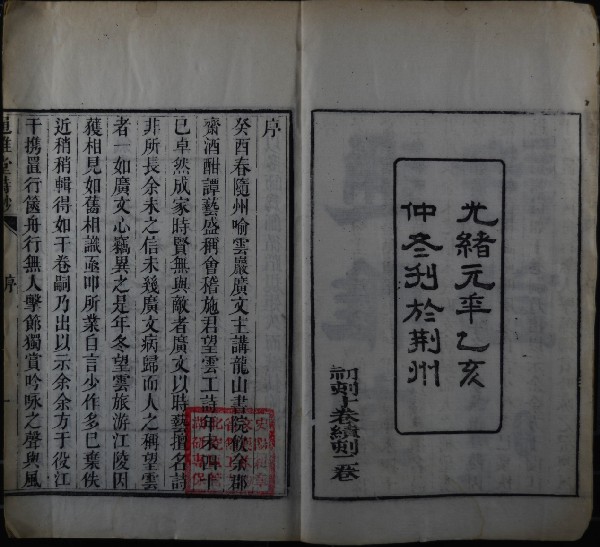 光緒元年乙亥
仲冬刋於荆州
初刻十卷續刻二卷
序
癸酉春隨州喻雲巖廣文主講龍山書院飲余郡
齋酒酣譚藝盛稱會稽施君望雲工詩年未四十
已卓然成家時賢無與敵者廣文以時藝擅名詩
非所長余未之信未幾廣文病歸而人之稱望雲
者一如廣文心竊異之是年冬望雲旅游江陵因
獲相見如舊相識亟叩所業自言少作多已棄佚
近稍稍輯得如干卷嗣乃出以示余余方于役江
干携置行篋舟行無人擊節獨賞吟咏之聲與風
堂詩鈔
序
一